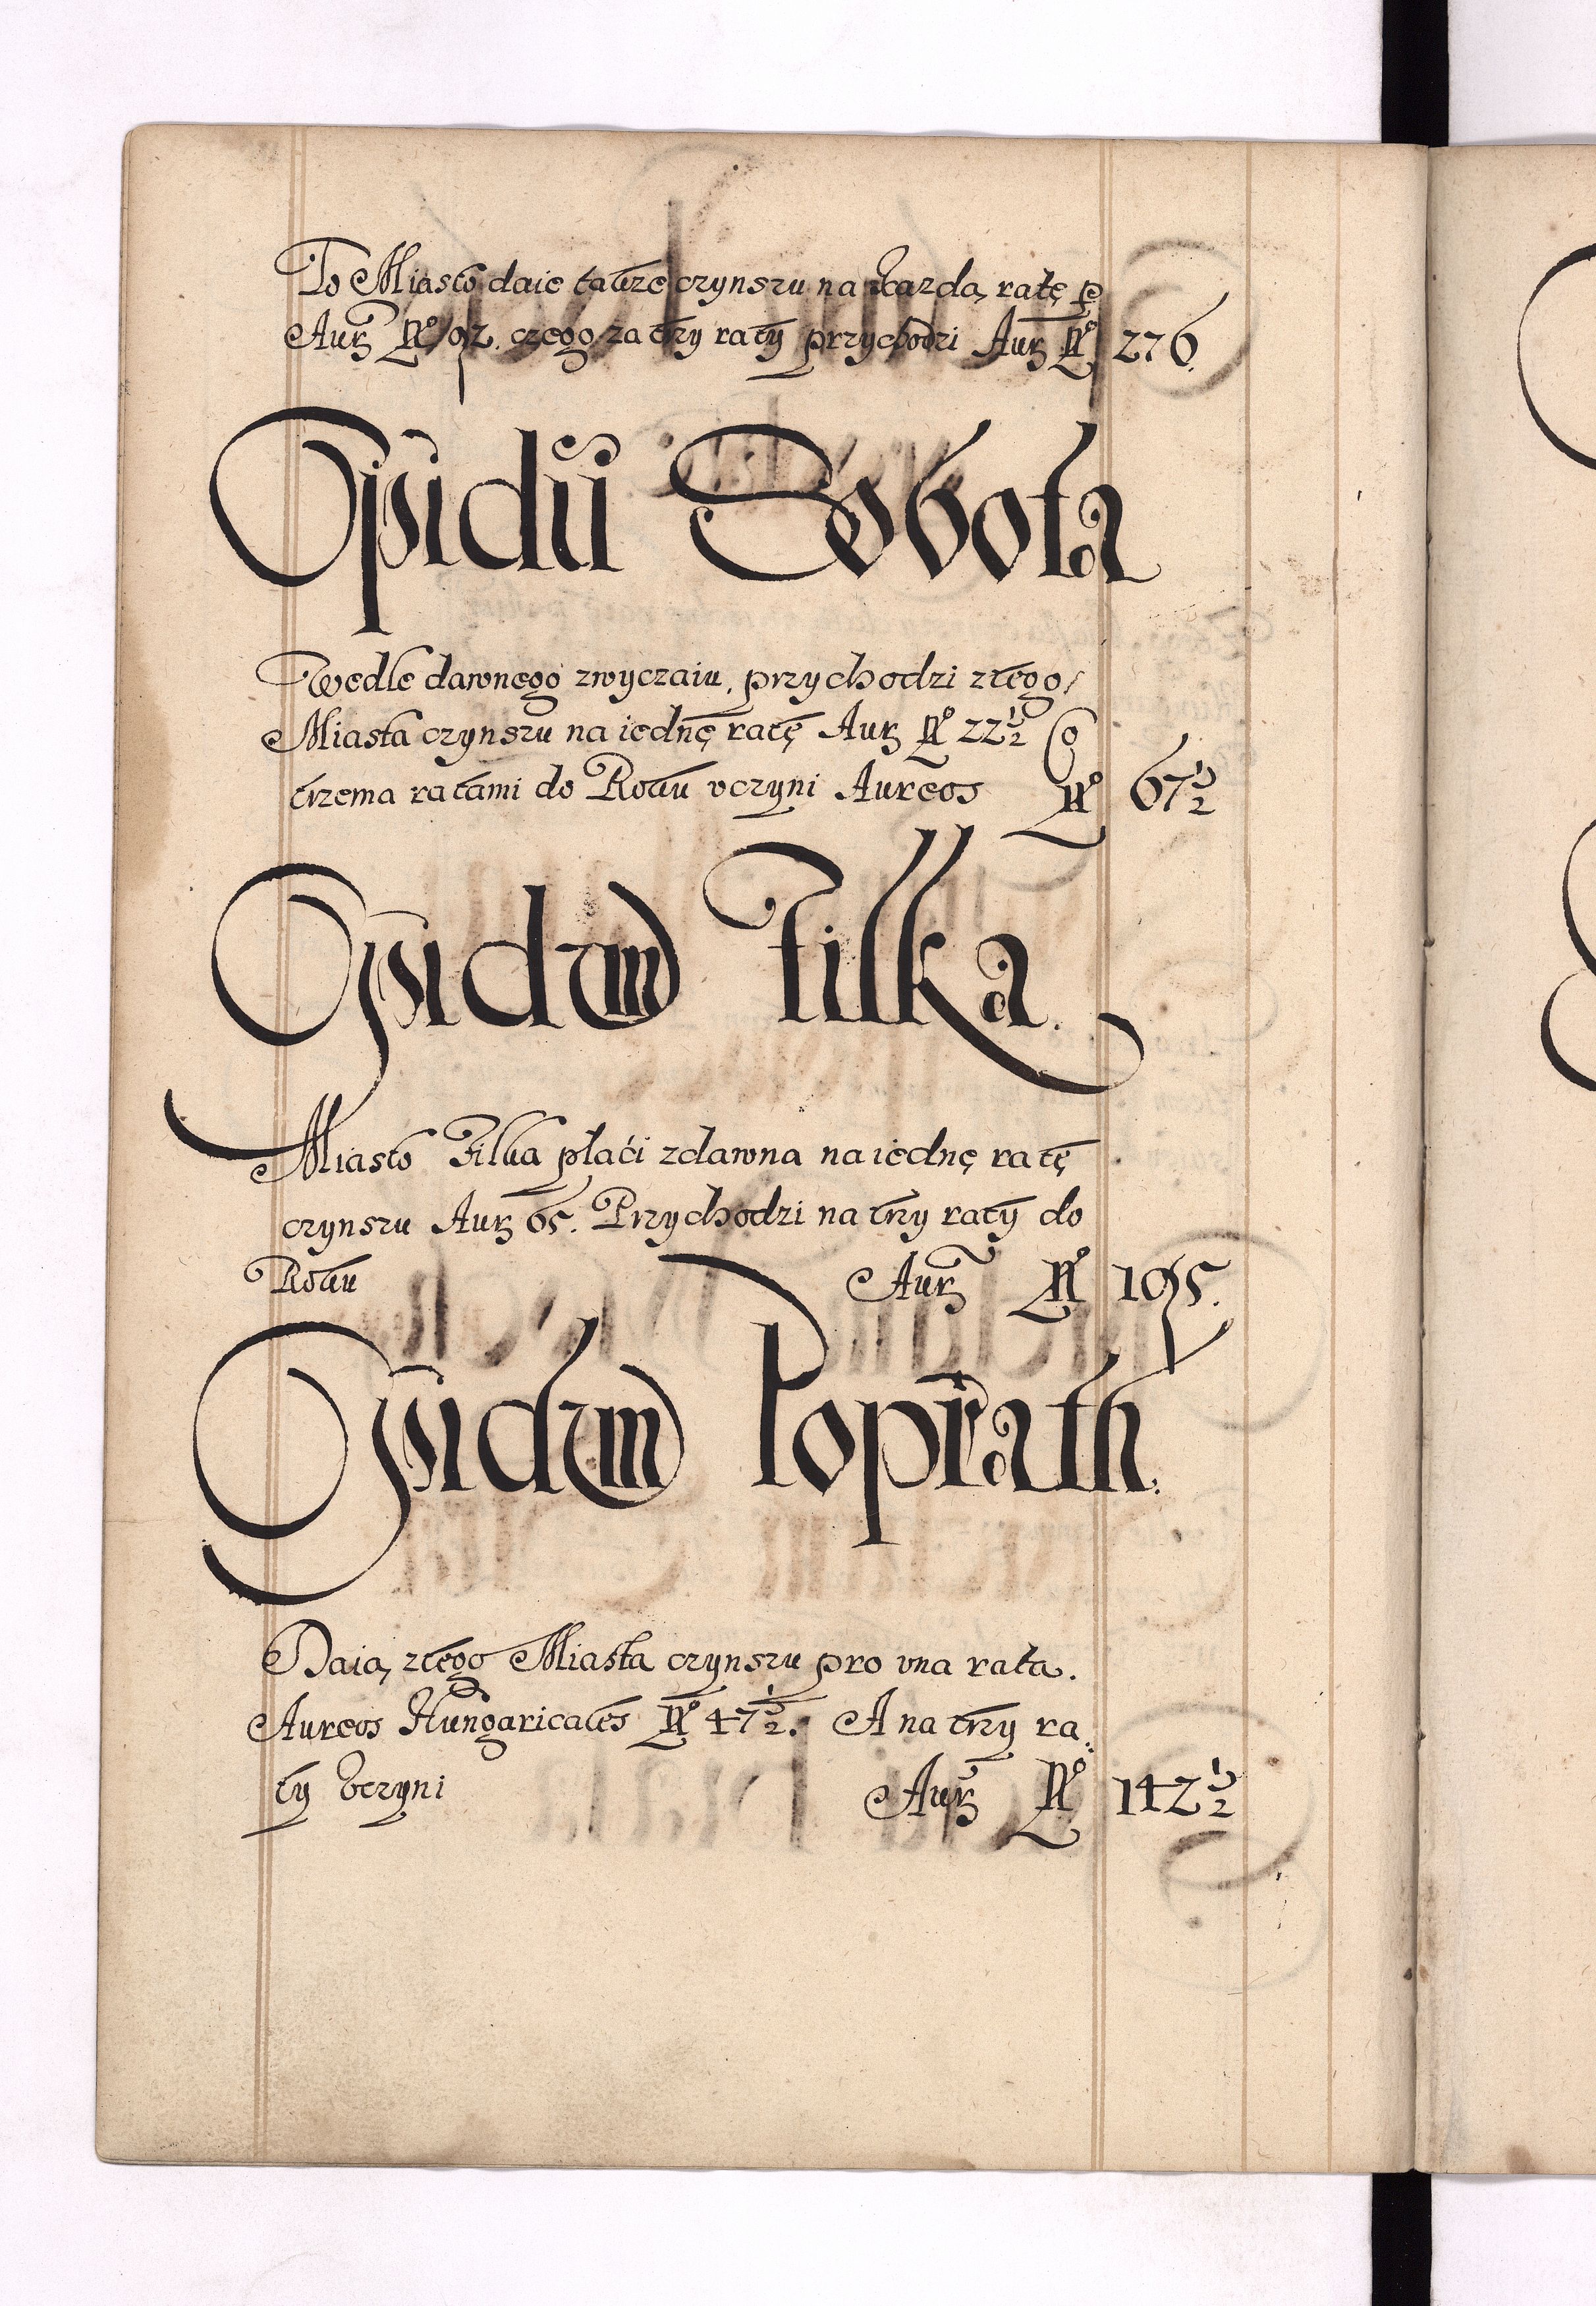 To Miasto daie także czynszu na każdą ratę p
Aur N° 92. czego za trzy raty przychodzi Aur N° 276.
Opidū Sobota
Wedle dawnego zwyczaiu, przychodzi ztego
Miasta czynszu na iednę ratę Aur N° 22½ Co
trzema ratami do Roku vczyni Aureos N° 67½
Opidum Filka.
Miasto Filka płaći zdawna na iednę ratę
czynszu Aur 65. Przychodzi na trzy raty do
Roku Aur N° 195.
Opidum Poprath.
Daią ztego Miasta czynszu pro vna rata.
Aureos Hungaricales N° 47½. A na trzy ra
ty vczyni Aur N° 142½